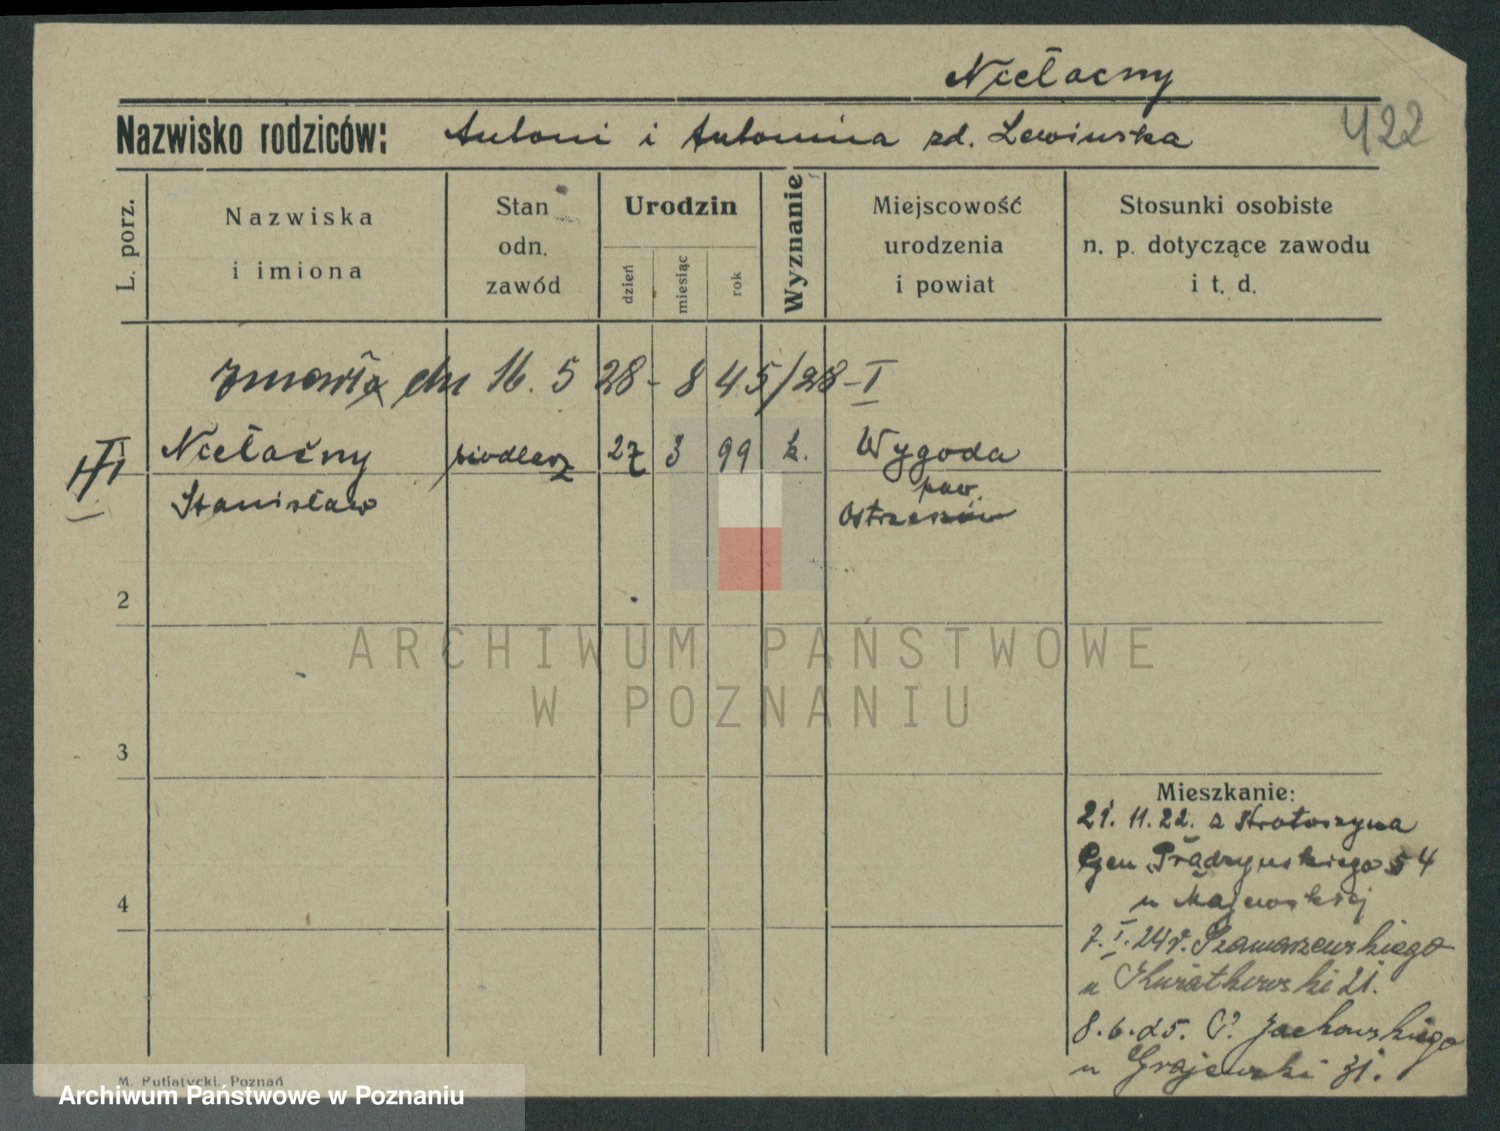 Niełacny
Nazwisko rodziców: Antoni i Antonina zd. Lewinska
422
L. porz.
Nazwiska
i imiona
Stan
odn.
zawód
Urodzin
dzień
miesiąc
rok
Wyznanie
Miejscowość
urodzenia
i powiat
Stosunki osobiste
n. p. dotyczące zawodu
i t. d.
zmarł dn 16. 5 28 - 8 45/28 - I
III Niełacny siodlarz 27 3 99 k. Wygoda
Stanisław
pow.
Ostrzeszów
2
ARCHIWUM PAŃSTWOWE
W POZNANIU
3
4
Mieszkanie:
21. 11. 22. z Krotoszyna
Gen. Prądzyńskiego 54
u Majewskiej
7. I. 24 r. Szamarzewskiego
u Kwiatkowski 21.
8. 6. 25. Jackowskiego
u Grajewski 31.
M. Putiatycki, Poznań
Archiwum Państwowe w Poznaniu